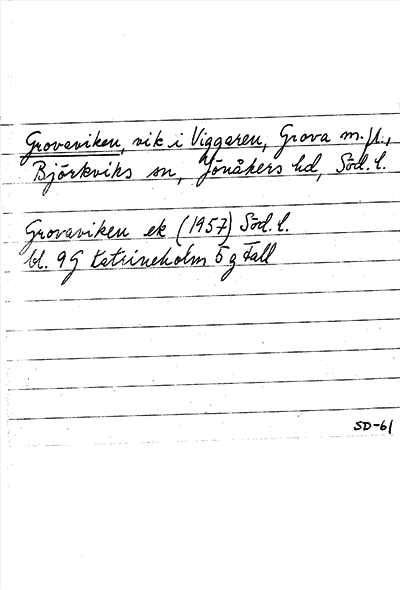 Grovaviken, vik i Viggaren, Grova m.fl.,
Björkviks sn, Jönåkers hd, Söd. l.
Grovaviken ek (1957) Söd. l.
bl. 9G Katrineholm 5 g Fall
SD-61